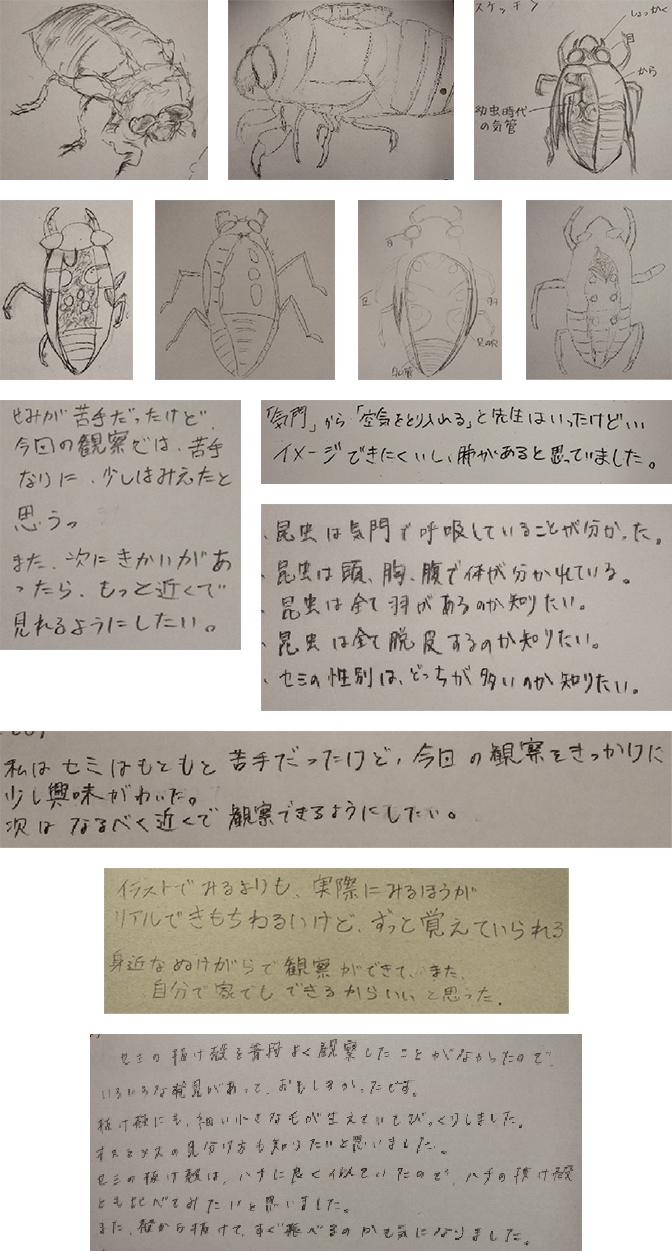 スケッチ
しょっかく
目
から
幼虫時代
の気管
目
足
羽
せみが苦手だったけど、
今回の観察では、苦手
なりに、少しはみえたと
思うっ
また、次にきかいがあ
ったら、もっと近くで
見れるようにしたい。
「気門」から「空気をとり入れる」と先生はいったけどいい
イメージできにくいし、肺があると思っていました。
、昆虫は気門で呼吸していることが分かった。
、昆虫は頭、胸、腹で体が分かれている。
、昆虫は全て羽があるのか知りたい。
、昆虫は全て脱皮するのか知りたい。
、セミの性別は、どっちが多いのか知りたい。
私はセミはもともと苦手だったけど、今回の観察をきっかけに
少し興味がわいた。
次はなるべく近くで観察できるようにしたい。
イラストでみるよりも、実際にみるほうが
リアルできもちわるいけど、ずっと覚えていられる
身近なぬけがらで観察ができて、また、
自分で家でもできるからいいと思った。
セミの抜け殻を普段よく観察したことがなかったので、
いろいろな発見があって、おもしろかったです。
抜け殻にも、細い小さな毛が生えていてびっくりしました。
オスとメスの見分け方も知りたいと思いました。
セミの抜け殻は、ハチに良く似ていたので、ハチの抜け殻
とも比べてみたいと思いました。
また、殻から抜けて、すぐ飛べるのかも気になりました。